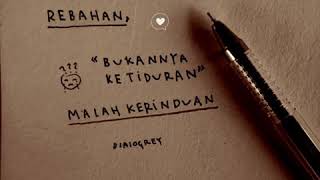 REBAHAN,
???
"BUKANNYA
KETIDURAN"
MALAH KERINDUAN
DIALOGREY